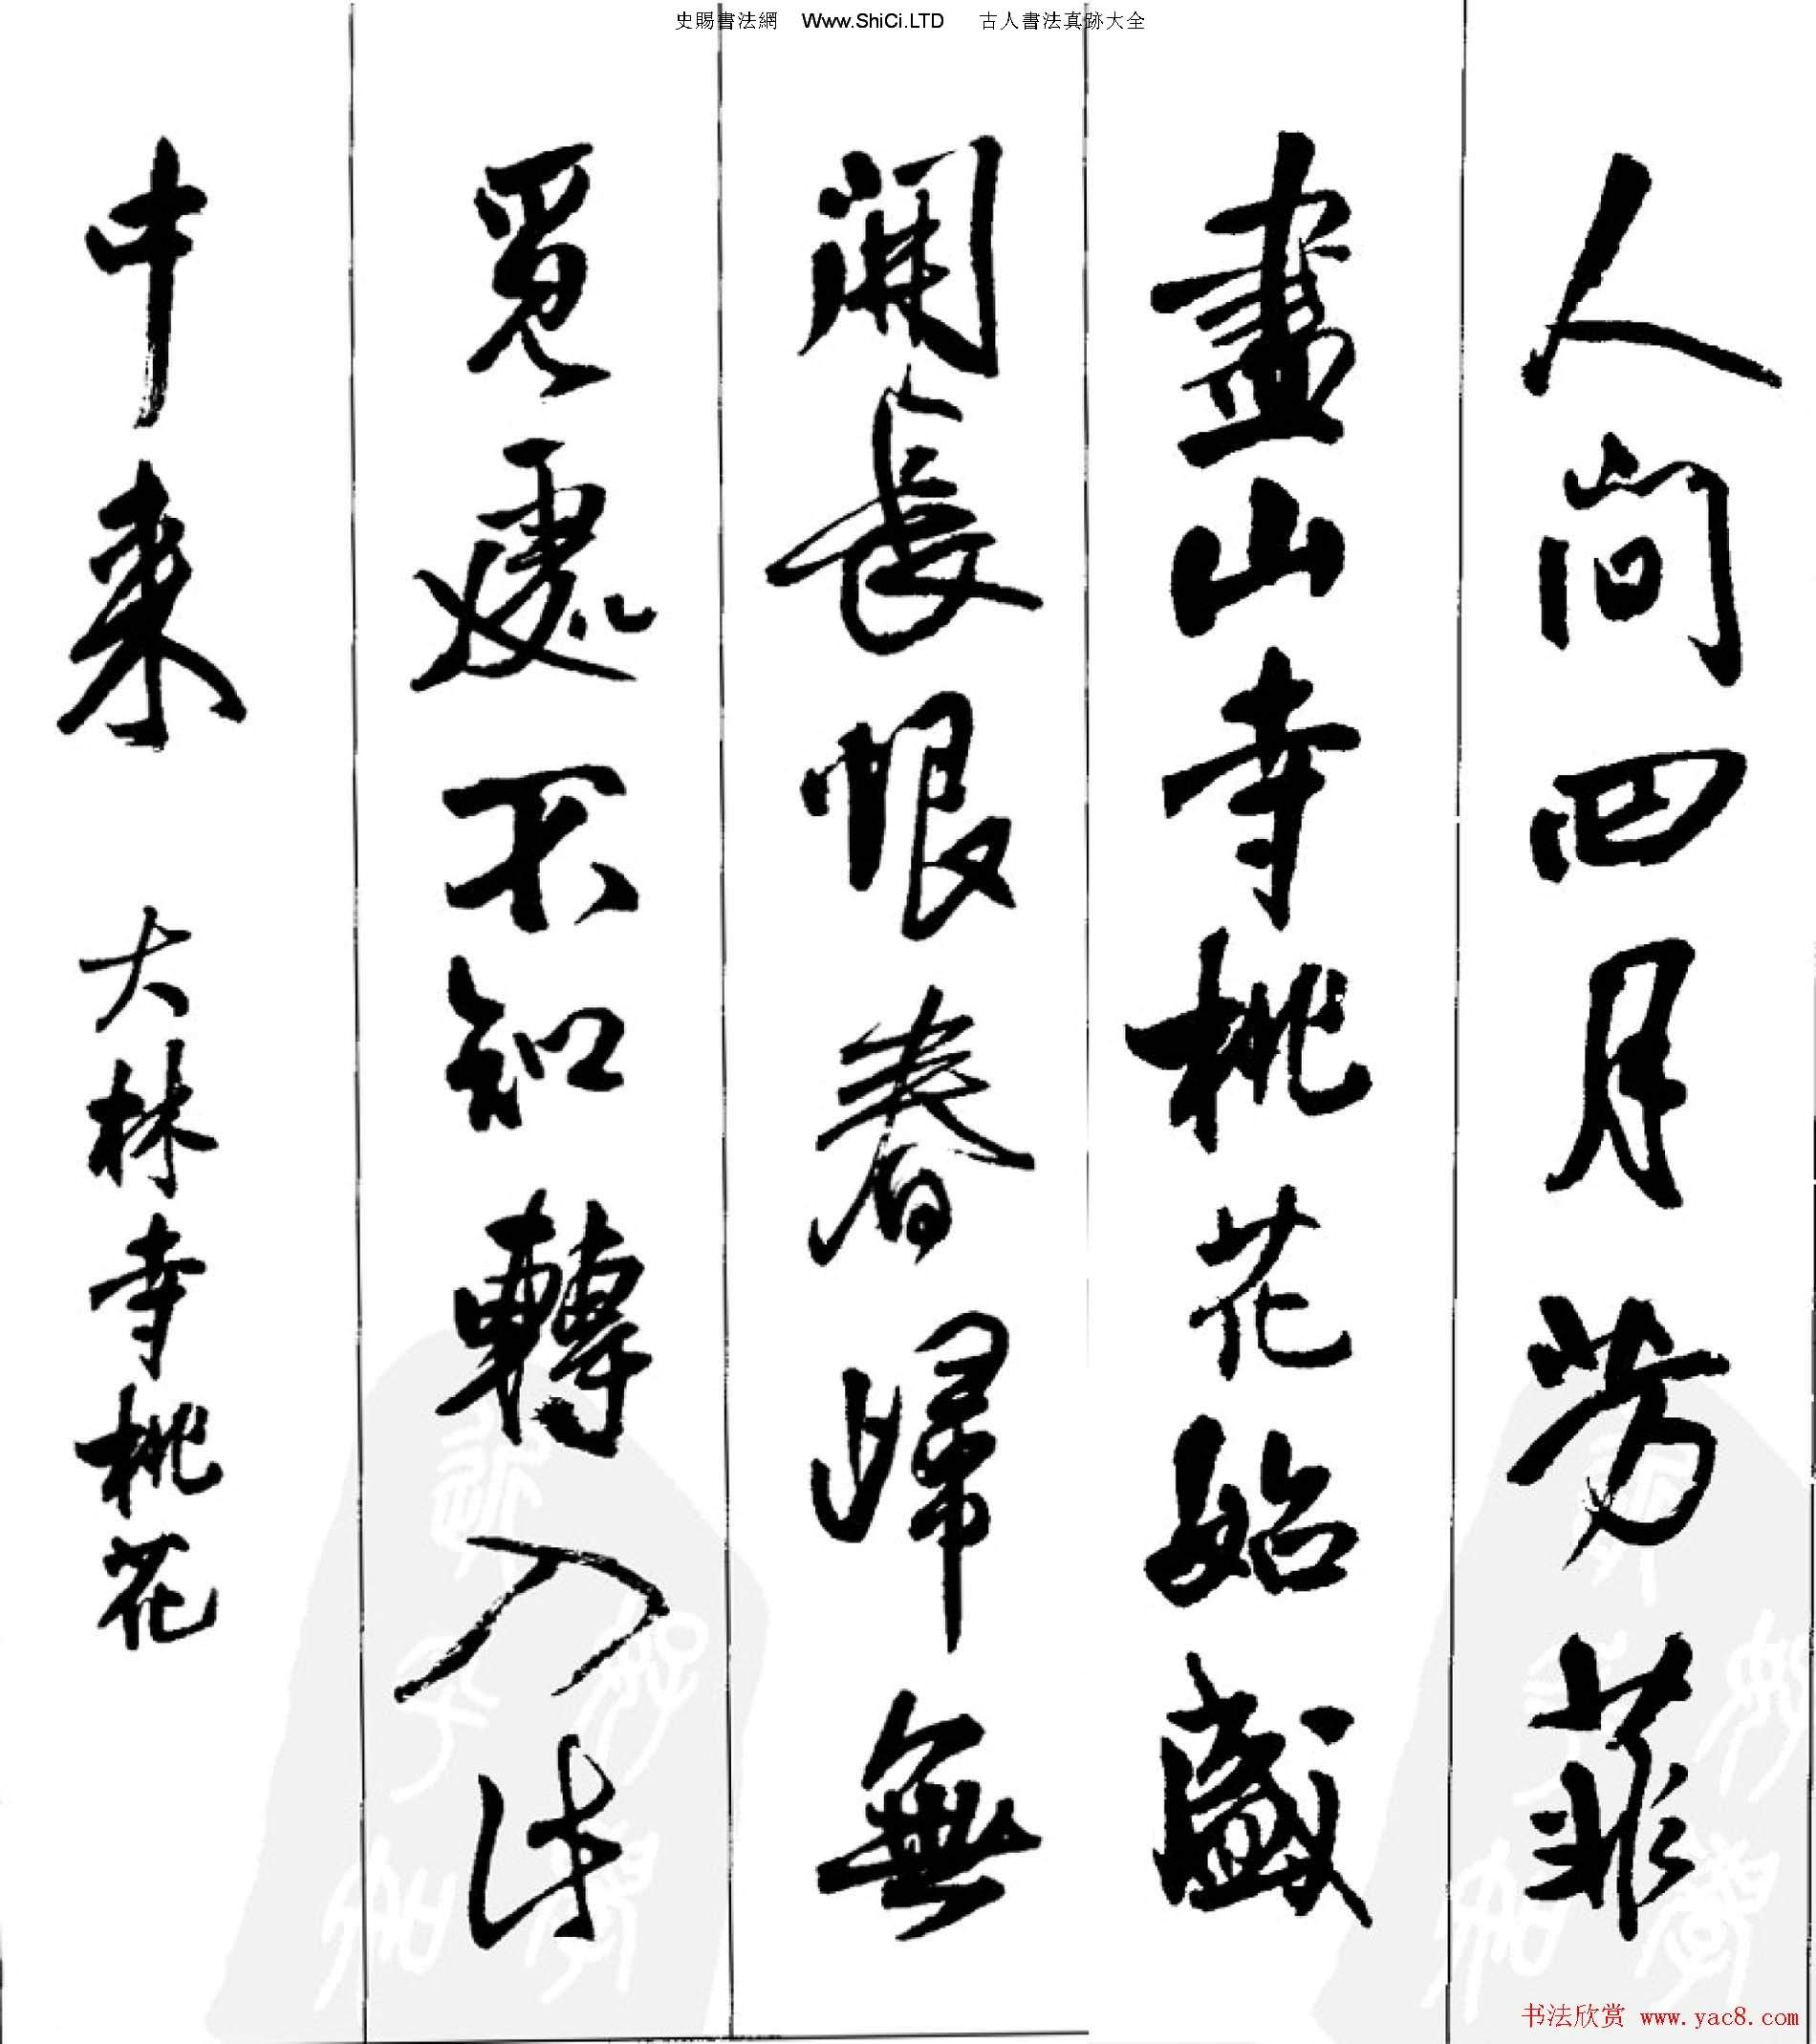 史賜書法網 Www.ShiCi.LTD 古人書法真跡大全
人間四月芳菲
盡山寺桃花始盛
開長恨春歸無
覓處不知轉入此
中來 大林寺桃花
书法欣赏 www.yac8.com